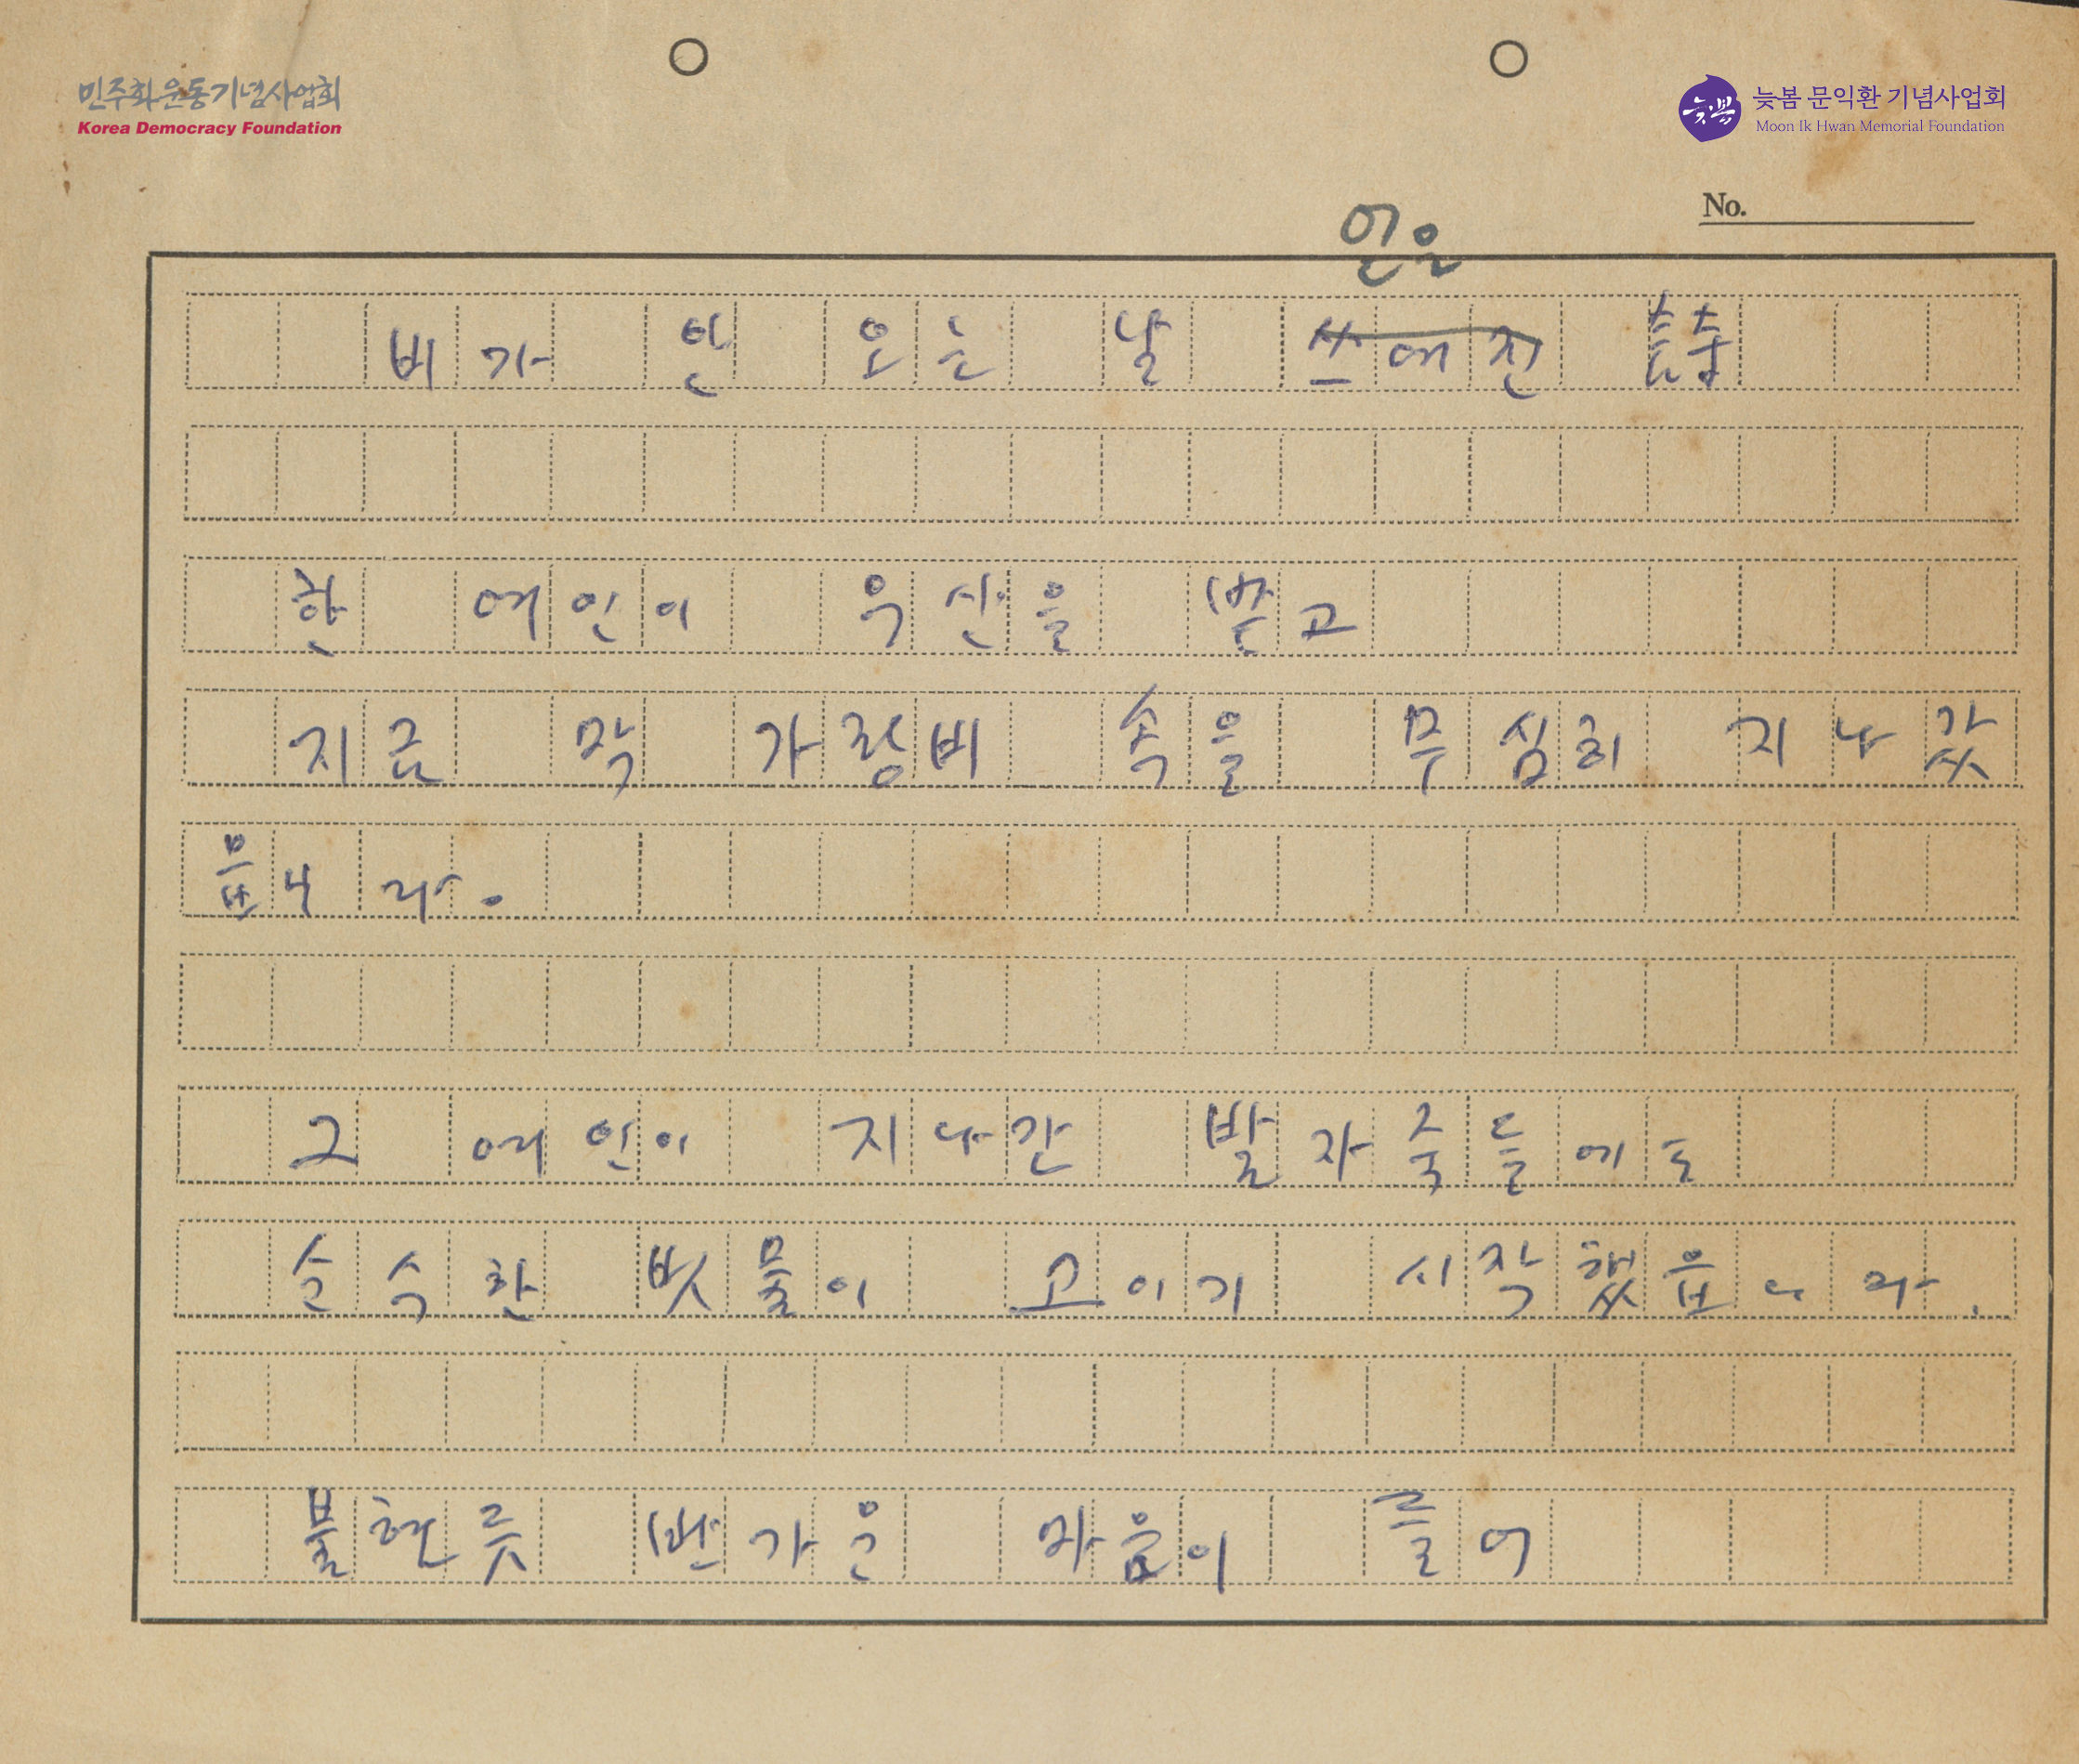 민주화운동기념사업회
Korea Democracy Foundation
늦봄
늦봄 문익환 기념사업회
Moon Ik Hwan Memorial Foundation
No.
읽을
비가 안 오는 날 쓰여진 詩
한 여인이 우산을 받고
지금 막 가랑비 속을 무심히 지나갔
읍니다.
그 여인이 지나간 발자죽들에도
순수한 빗물이 고이기 시작했읍니다.
불현듯 반가운 마음이 들어